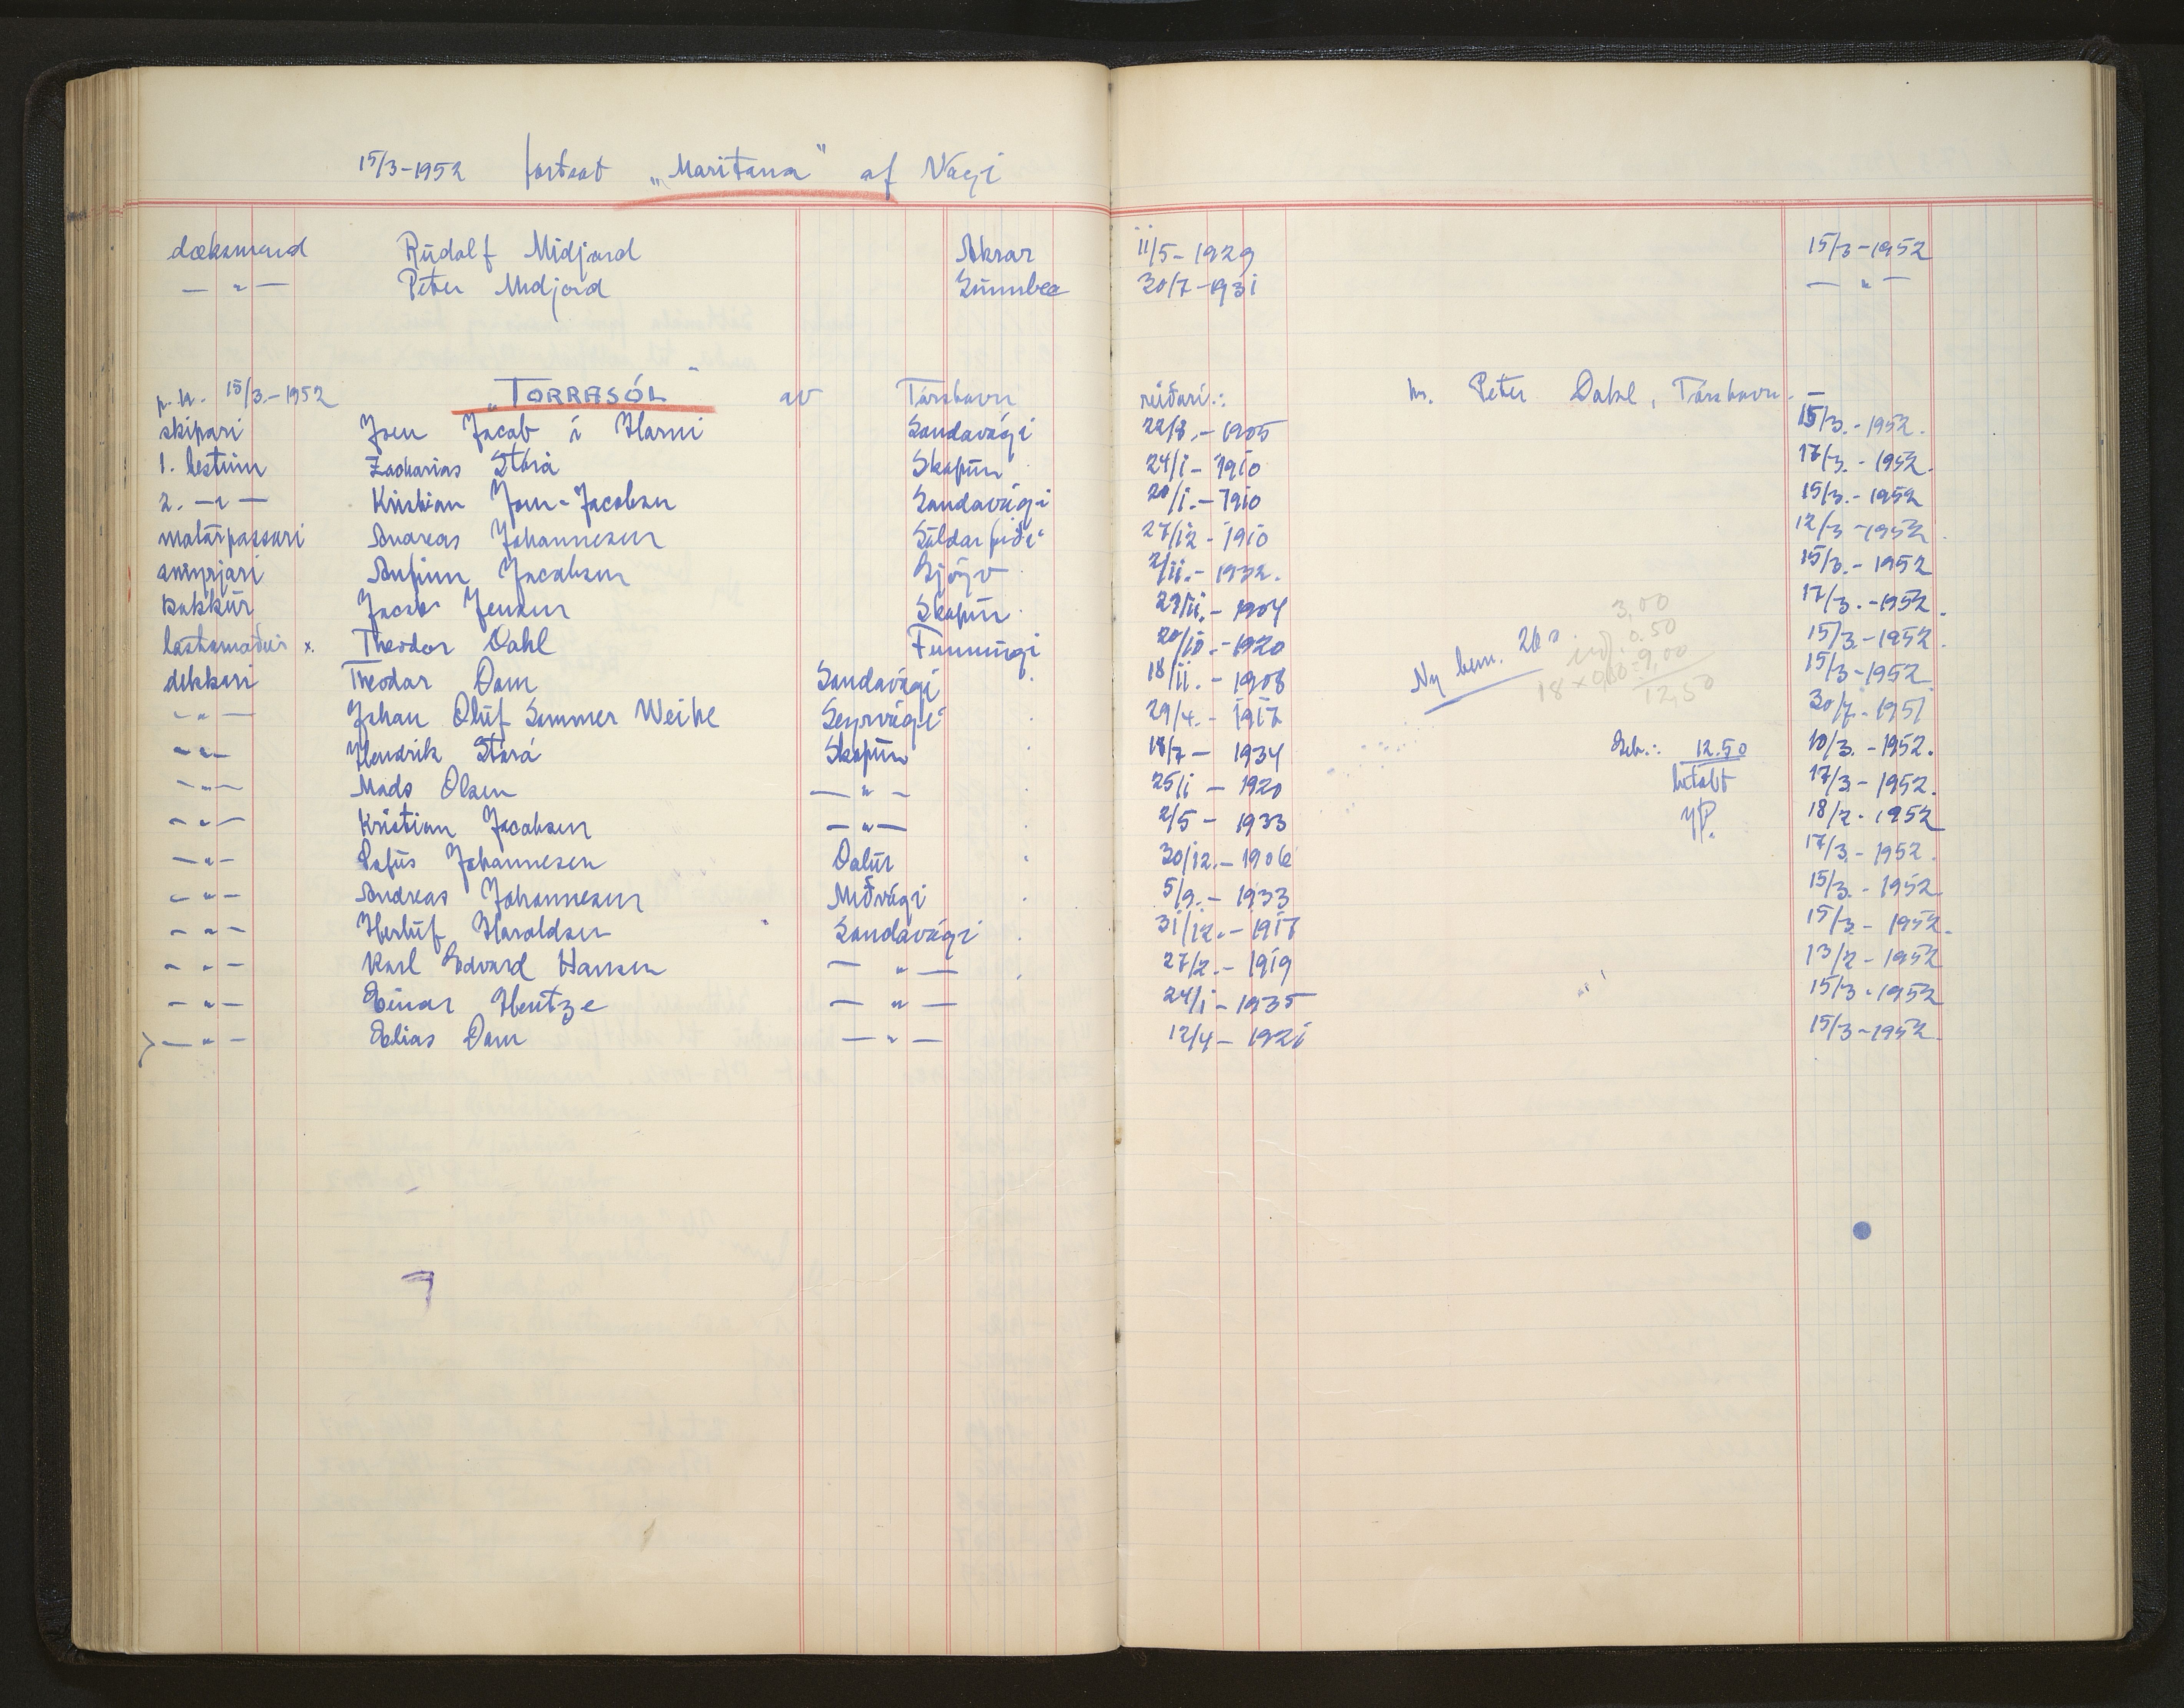 15/3-1952 fortsat „Maritana" af Vagi
dæksmand Rudolf Midjord Akrar 11/5-1929 15/3-1952
— " — Peter Midjord Sumbee 30/7-1931 — " —
p.h. 15/3.-1952 „TORRASÓL" av Tórshavn reiðari.: hr. Peter Dahl, Tórshavn.
skipari Joen Jacob í Harni Sandavági 22/8.-1905 15/3.-1952.
1. bestum Zacharias Stórá Skopun 24/1-1910 17/3.-1952.
2. — " — Kristian Joen-Jacobsen Sandavági 20/1.-1910 15/3.-1952
matárpassari Andreas Johannesen Søldarfirði 27/12-1910 12/3-1952.
smyrjari Anfinn Jacobsen Gjógv 2/11.-1932. 15/3.-1952
kokkur Jacob Jensen Skopun 29/11.-1904 17/3.-1952.
lastsmaður x. Theodor Dahl Funningi 20/10.-1920 15/3.-1952.
dekkari Theodor Dam Sandavági 18/11.-1908 15/3-1952
— " — Johan Oluf Sommer Weihe Seyrvági 29/4.-1917 30/7.-1951
— " — Hendrik Stórá Skopun 18/7-1934 10/3.-1952.
— " — Mads Olsen — " — 25/1-1920 17/3-1952.
— " — Kristian Jacobsen — " — 2/5-1933 18/2-1952
— " — Johannesen Dalur 30/12.-1906 17/3.-1952.
— " — Andreas Johannesen Miðvági 5/9.-1933 15/3.-1952.
— " — Herluf Haraldsen Sandavági 31/12.-1917 15/3.-1952.
— " — Karl Edvard Hansen — " — 27/2.-1919 13/2-1952
— " — Einar Hentze — " — 24/1-1935 15/3-1952
— " — Elias Dam — " — 12/4-1921 15/3-1952.
Ny bem. 26
3,00
0.50
9,00
12,50
Geb.: 12.50
betalt